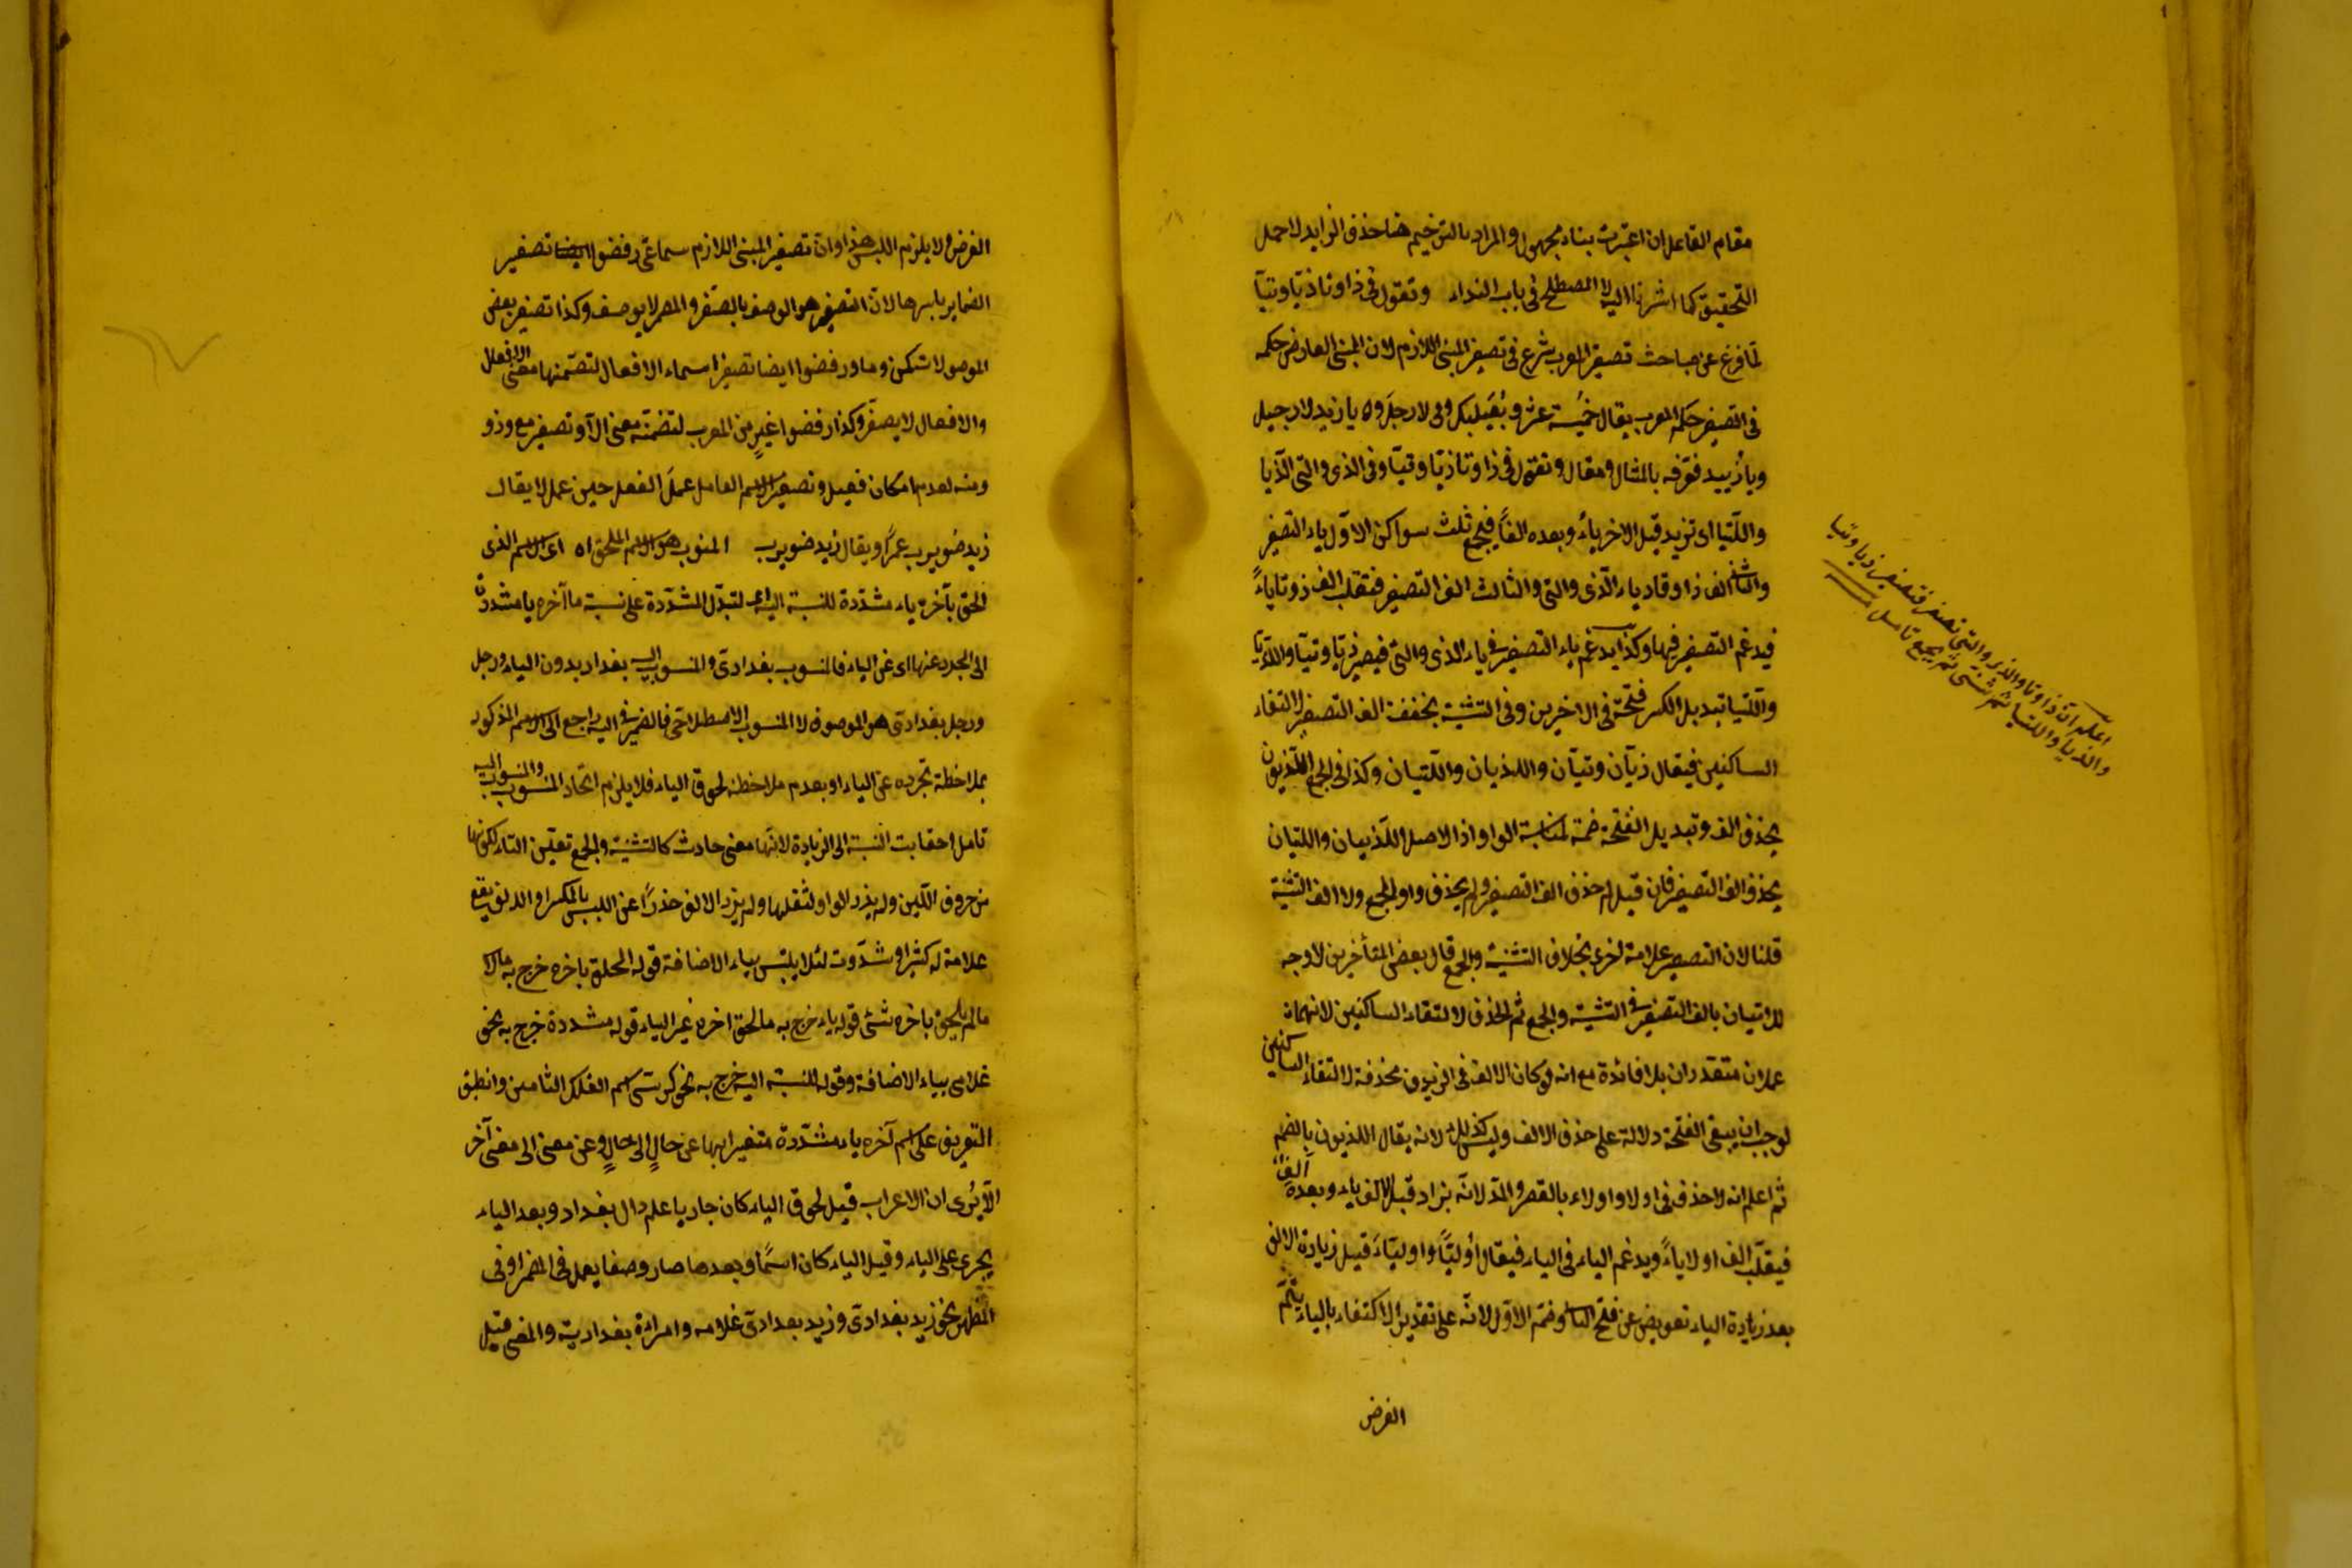 مقام الفاعل ان اعتبرت بناء مجهول والمراد بالترخيم هنا حذف الزايد لا جمل
التحقيق كما اشرنا اليه لا المصطلح فى باب النداء وتقول فى ذا وتا ذيّا وتيّا
لمّا فرغ عن مباحث تصغير المعرب شرع فى تصغير المبنى اللازم لان المبنى العارض حكمه
فى التصغير حكم المعرب يقال خميسة عشر وبُعَيلبك وفى لا رجل وه يا زيد لا رجيل
ويا زُييد فعرّفه بالمثال وفقال وتقول فى ذا وتا ذيّا وتيّا وفى الذى والتى الّذيا
واللّتيا اى تزيد قبل الاخر ياءً وبعده الفاً فيجمع ثلث سواكن الاوّل ياء التصغير
والثانى الف ذا وتا وياء الّذى والتى والثالث الف التصغير فتقلب الف ذو تا ياءً
فيدغم التصغير فيها وكذا يدغم ياء التصغير فى ياء الذى والتى فيصير ذيّا وتيّا واللّذيّا
واللّتيا تبديل الكسر فتحة فى الاخرين وفى التثنية يخفف الف التصغير لالتقاء
الساكنين فيقال ذيّان وتيّان واللذيان واللّتيان وكذا فى الجمع اللّذيون
بحذف الف وتبديل الفتحة ضمة لمناسبة الواو اذ الاصل اللّذييان واللتيان
بحذف الف التصغير فان قيل لم حذف الف التصغير ولم يحذف واو الجمع ولا الف التثنية
قلنا لان التصغير علامة اخرى بخلاف التثنية والجمع قال بعض المتأخرين لا وجه
للاتيان بالف التصغير فى التثنية والجمع ثم الحذف لالتقاء الساكنين لانهما
عملان متقدران بلا فائدة مع انه لو كان الالف فى الزيدون محذفة لالتقاء الساكنين
لوجب ان يبقى الفتحة دلالة على حذف الالف وليس كذلك لانه يقال اللذيون بالضم
ثم اعلم انه لا حذف فى اولا واولاء بالقصر والمدّ لانّه يزاد قبل الالف ياء وبعده الف
فيقلّب الف اولا ياءً ويدغم الياء فى الياء فيقال اُوليّا واوليّاء قبل زيادة الالف
بعد زيادة الياء تعويض عن فتح التا وضمّ الاوّل لانّه على تقدير الاكتفاء بالياء يتمّ
الغرض
اعلم انّ ذا وتا والذى والتى تصغر فتصغير ذيا وتيا
والذيا واللتيا ثم تثنى ثم يجمع تامل
الغرض ولا يلزم اللبس هذا وانّ تصغير المبنى اللازم سماعىّ رفضوا ايضا تصغير
الضماير باسرها لانّ التصغير هو الوصف بالصّغر والمضمر لا يوصف وكذا تصغير بعض
الموصولات كمن وما ورفضوا ايضا تصغير اسماء الافعال لتضمّنها معنى الافعال
والافعال لا يصغّر وكذا رفضوا غير من المعرب لتضمّنه معنى الّا وتصغير مع وذو
ومنه لعدم امكان فعيل وتصغير الاسم العامل عملَ الفعل حين عمل لا يقال
زيد ضويرب عمرًا ويقال زيد ضويرب المنسوب هو الاسم الملحق اه اى الاسم الذى
الحق بآخره ياء مشدّدة للنسبة اليه اى لتدلّ المشدّدة على نسبة ما آخره يا مشددة
الى المجرد عنها اى عن الياء فالمنسوب بغدادىّ والمنسوب اليه بغداد بدون الياء ورجل
ورجل بغدادى هو الموصوف لا المنسوب الاصطلاحى فالضمير فى اليه راجع الى الاسم المذكور
بملاحظة تجرده عن الياء او بعدم ملاحظة لحوق الياء فلا يلزم اتحاد المنسوب والمنسوب اليه
تامل احقابت النسبة الى الزيادة لانّها معنى حادث كالتثنية والجمع تعيّن الياء لكونها
من حروف اللّين ولم يزد الواو لثقلها ولم يزد الالف حذرًا عن اللبس بالمكسر او الالف يقع
علامة له كثيرا وشدّدت لئلا يلتبس بياء الاضافة قوله الملحق باخره خرج به مالا
مالم يلحق باخره شئ قوله ياء خرج به ما لحق اخره غير الياء قوله مشددة خرج به نحو
غلامى بياء الاضافة وقوله للنسبة اليه خرج به نحو كرسىّ اسم الفلك الثامن وانطبق
التعريف على اسم آخره ياء مشدّدة متغيرا بها عن حالٍ الى حالٍ وعن معنى الى معنى آخر
الّا يُرى ان الاعراب قبل لحوق الياء كان جاريا على دال بغداد وبعد الياء
يجرى على الياء وقبل الياء كان اسمًا وبعدها صار وصفا يعمل فى المضمر او فى
المظهر نحو زيد بغدادىّ وزيد بغدادىّ غلامه وامراءة بغداديّة والمعنى قبل